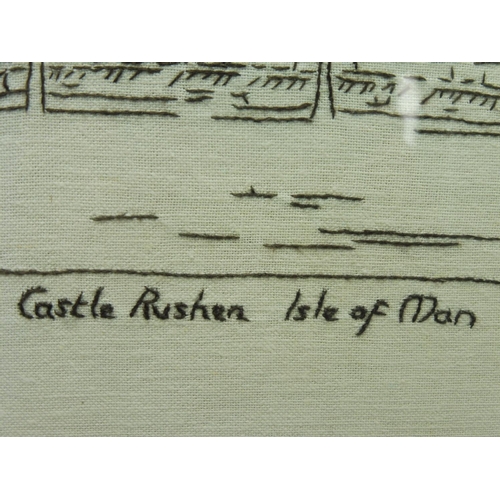 Castle Rushen Isle of Man